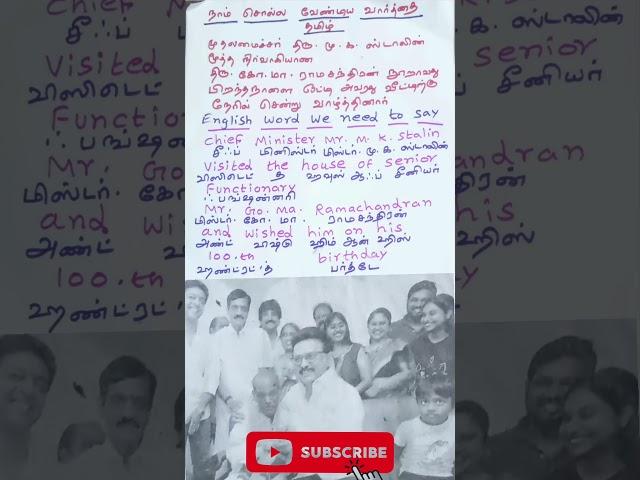 நாம் சொல்ல வேண்டிய வார்த்தை
தமிழ்
முதலமைச்சர் திரு. மு. க. ஸ்டாலின்
மூத்த நிர்வாகியான
திரு. கோ. மா. ராமசந்திரன் நூறாவது
பிறந்தநாளை ஒட்டி அவரது வீட்டிற்கு
நேரில் சென்று வாழ்த்தினார்
English word we need to say
Chief Minister Mr. M. K. Stalin
சீஃப் மினிஸ்டர் மிஸ்டர். மு. க. ஸ்டாலின்
Visited the house of senior
விஸிடெட் த ஹவுஸ் ஆஃப் சீனியர்
Functionary
ஃபங்ஷன்னரி
Mr. Go. Ma. Ramachandran
மிஸ்டர். கோ. மா. ராமசந்திரன்
and wished him on his
அண்ட் விஷ்டு ஹிம் ஆன் ஹிஸ்
100.th birthday
ஹண்ட்ரட்'த் பர்த்டே
SUBSCRIBE